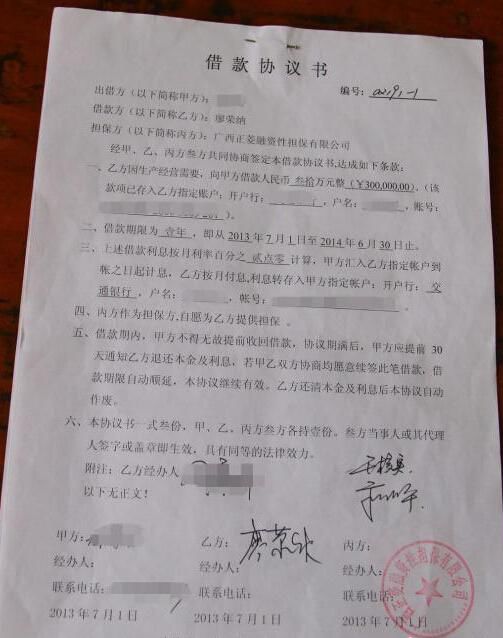 借款协议书
编号：
出借方（以下简称甲方）：
借款方（以下简称乙方）：廖荣纳
担保方（以下简称丙方）：广西正菱融资性担保有限公司
经甲、乙、丙方叁方共同协商签定本借款协议书,达成如下条款：
一、乙方因生产经营需要，向甲方借款人民币 叁拾万元整（¥300,000.00），（该
款项已存入乙方指定账户：开户行：，户名：，账号：
）。
二、借款期限为 壹年 ，即从 2013 年 7 月 1 日至 2014 年 6 月 30 日止。
三、上述借款利息按月利率百分之 贰点零 计算，甲方汇入乙方指定帐户到
帐之日起计息，乙方按月付息,利息转存入甲方指定帐户：开户行： 交
通银行 ，户名：，帐号：
四、丙方作为担保方,自愿为乙方提供担保 。
五、借款期内，甲方不得无故提前收回借款，协议期满后，甲方应提前 30
天通知乙方退还本金及利息，若甲乙双方协商均愿意续签此笔借款，借
款期限自动顺延，本协议继续有效。乙方还清本金及利息后本协议自动
作废。
六、本协议书一式叁份，甲、乙、丙方叁方各持壹份。叁方当事人或其代理
人签字或盖章即生效，具有同等的法律效力。
附注：乙方经办人
以下无正文！
甲方： 乙方： 丙方：
经办人： 经办人： 经办人：
联系电话： 联系电话： 联系电话：
2013 年 7 月 1 日 2013 年 7 月 1 日 2013 年 7 月 1 日